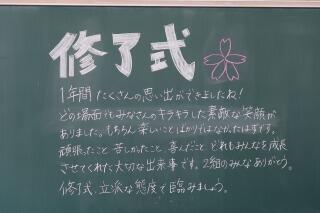 修了式
1年間 たくさんの思い出ができましたね!
どの場面でもみなさんのキラキラした素敵な笑顔が
ありました。もちろん楽しいことばかりではなかったはずです。
頑張ったこと 苦しかったこと 喜んだこと どれもみんなを成長
させてくれた大切な出来事です。2組のみんなありがとう。
修了式、立派な態度で臨みましょう。